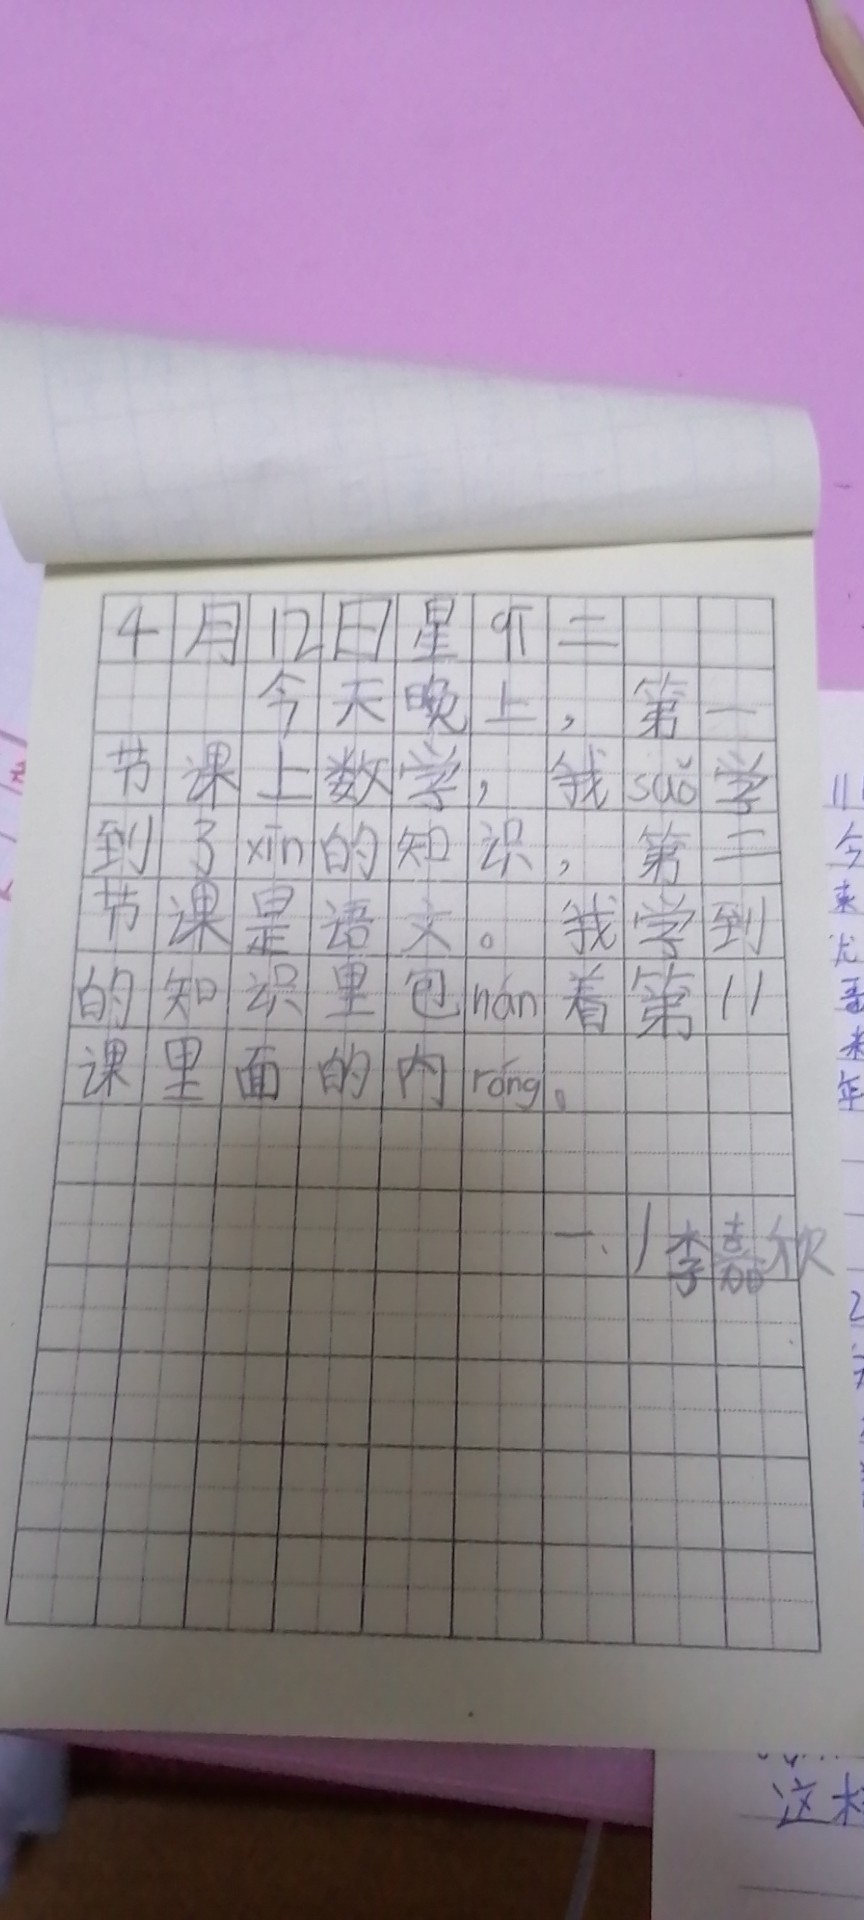 4月12日星qī二
今天晚上，第一
节课上数学，我suǒ学
到了xīn的知识，第二
节课是语文。我学到
的知识里包hán着第11
课里面的内róng。
一、1李嘉欣
这